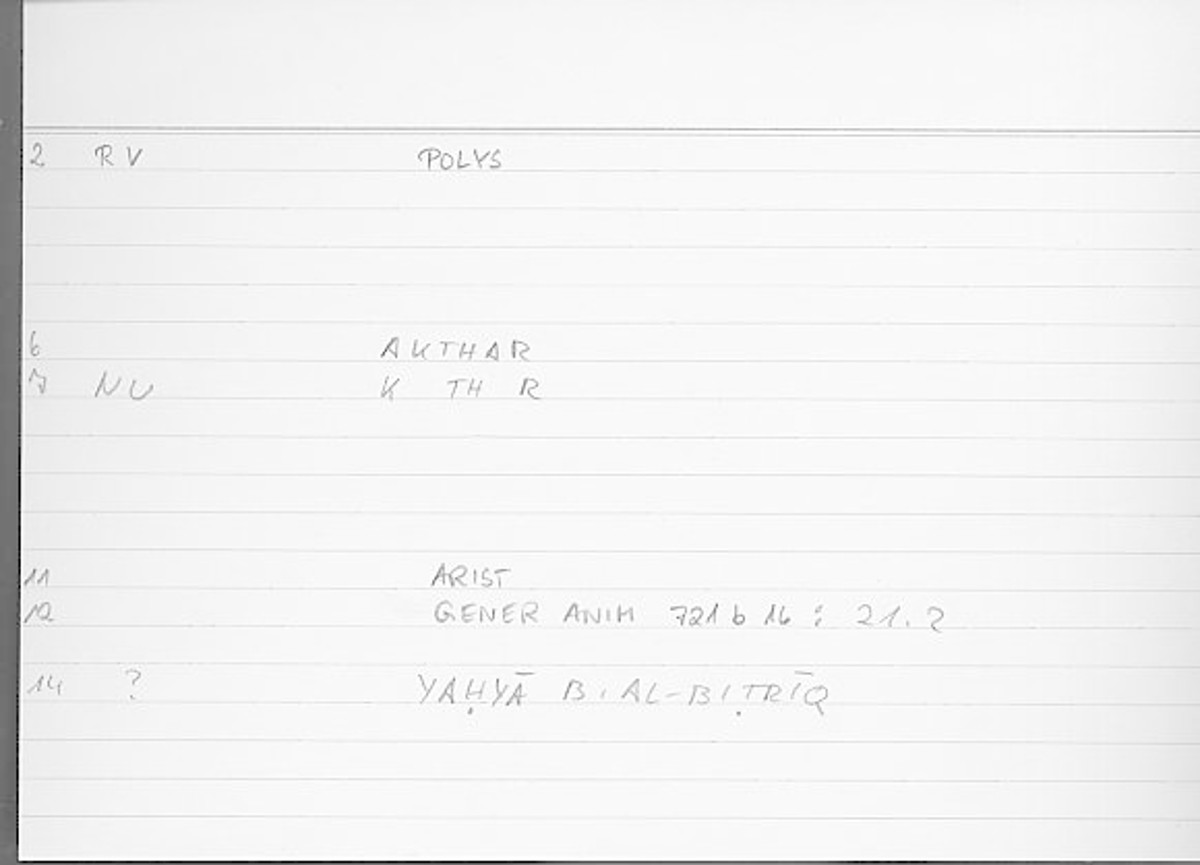 2 RV POLYS
6 AKTHAR
7 NU K TH R
11 ARIST
12 GENER ANIM 721 b 16 : 21.2
14 ? YAḤYĀ B. AL-BIṬRĪQ